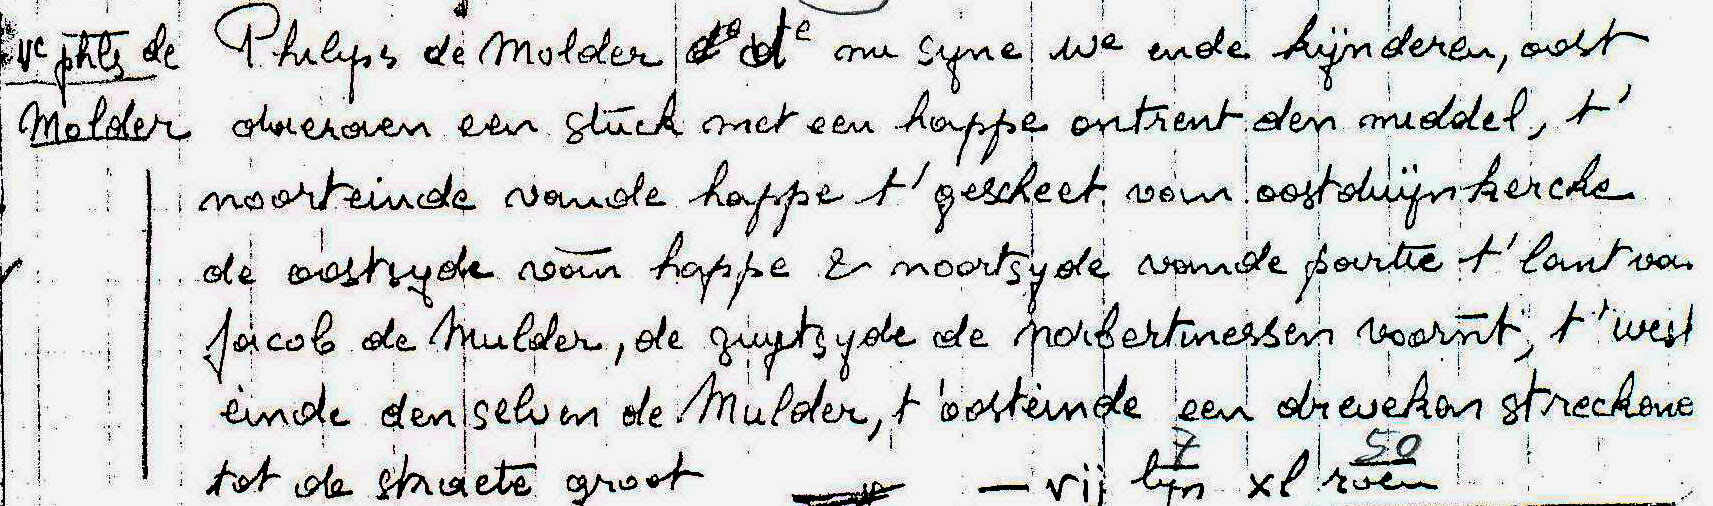 vᵉ phls de Philyps de Molder dᵒ dᵗᵉ nu syne wᵉ ende kijnderen, oost
Molder daeraen een stuck met een happe ontrent den middel, t'
noorteinde vande happe t' gescheet van oostduijnkercke
de oostsyde van happe & noortsyde vande partie t' lant va
Jacob de Mulder, de zuytsyde de norbertinessen voornt, t' west
einde den selven de Mulder, t' oosteinde een dreveken streckene
7 50
tot de straete groot — vij lyn xl roen